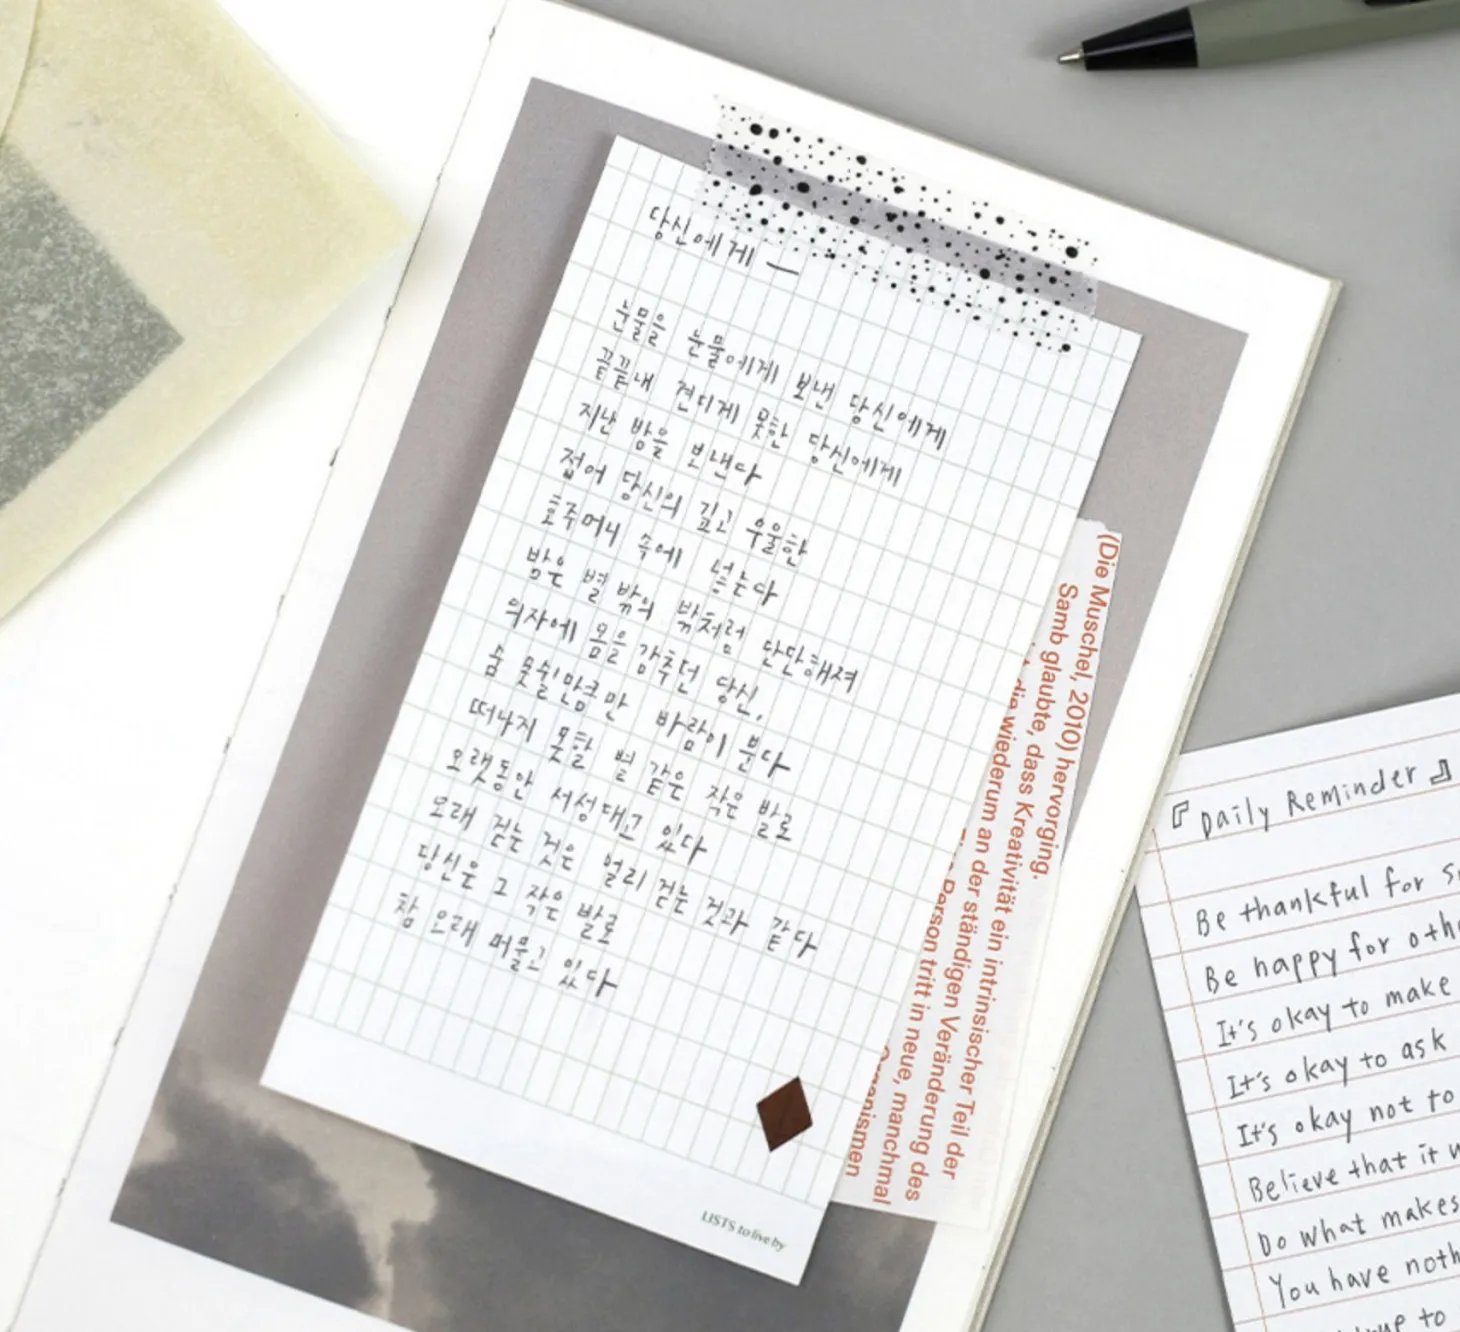 당신에게 —
눈물을 눈물에게 보낸 당신에게
끝끝내 견디게 못한 당신에게
지난 밤을 보낸다
접어 당신의 깊고 우울한
호주머니 속에 넣는다
밤은 별 밖의 밖처럼 단단해져
의자에 몸을 감추던 당신,
숨 못쉴만큼만 바람이 분다
떠나지 못할 별 같은 작은 발로
오랫동안 서성대고 있다
오래 걷는 것은 멀리 걷는 것과 같다
당신은 그 작은 발로
참 오래 머물고 있다
LISTS to live by
(Die Muschel, 2010) hervorging.
Samb glaubte, dass Kreativität ein intrinsischer Teil der
die wiederum an der ständigen Veränderung des
Person tritt in neue, manchmal
『Daily Reminder』
Be thankful for
Be happy for
It's okay to make
It's okay to ask
It's okay not to
Believe that it
Do what makes
You have
to